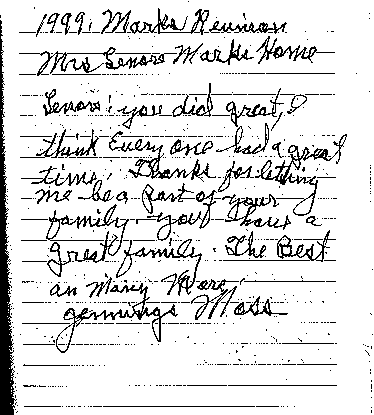 1999. Marks Reunion
Mrs Lenore Marks Home
Lenore: you did great, I
think Every one had a great
time. Thanks for letting
me be a Part of your
family. you have a
great family. The Best
an Many More,
Jennings Moss